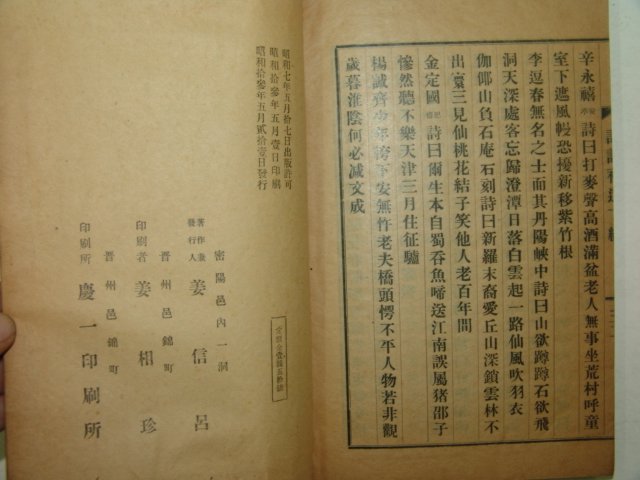 辛永禧 詩曰打麥聲高酒滿盆老人無事坐荒村呼童
室下遮風幔恐擾新移紫竹根
李逗春無名之士而其丹陽峽中詩曰山欲蹲蹲石欲飛
洞天深處客忘歸澄潭日落白雲起一路仙風吹羽衣
伽倻山負石庵石刻詩曰新羅末裔愛丘山深鎖雲林不
出寰三見仙桃花結子笑他人老百年間
金定國 詩曰爾生本自蜀吞魚啼送江南誤屬猪邵子
慘然聽不樂天津三月住征驢
楊誠齊少年胯下安無忤老夫橋頭愕不平人物若非觀
歲暮淮陰何必減文成
昭和七年五月拾七日出版許可
昭和拾參年五月壹日印刷
昭和拾參年五月貳拾壹日發行
密陽邑內一洞
著作兼
發行人 姜信呂
晋州邑錦町
印刷者 姜相珍
晋州邑錦町
印刷所 慶一印刷所